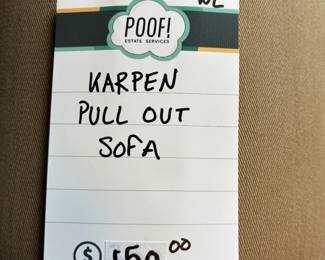 POOF!
ESTATE SERVICES
KARPEN
PULL OUT
SOFA
$ 150 00